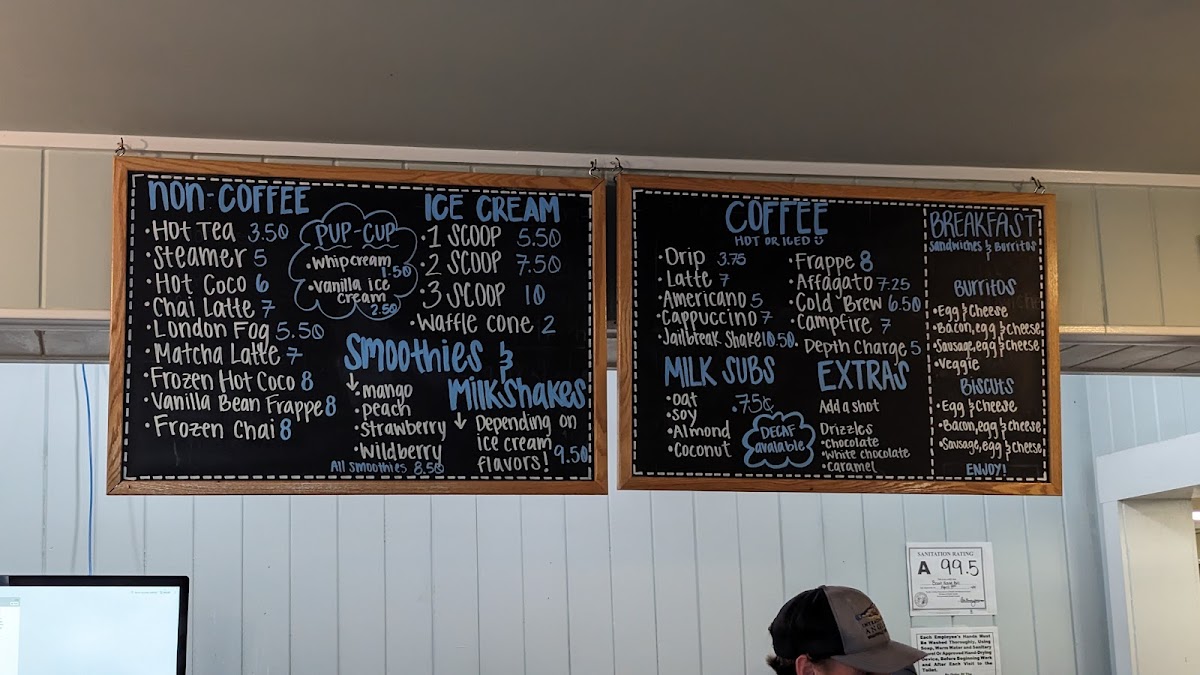 NON-COFFEE
•HOT TEA 3.50
•STEAMER 5
•HOT COCO 6
•CHAI LATTE 7
•LONDON FOG 5.50
•MATCHA LATTE 7
•FROZEN HOT COCO 8
•VANILLA BEAN FRAPPE 8
•FROZEN CHAI 8
PUP-CUP
•whipcream
1.50
•Vanilla ice
cream
2.50
ICE CREAM
•1 SCOOP 5.50
•2 SCOOP 7.50
•3 SCOOP 10
•WAFFLE CONE 2
SMOOTHIES &
MILKSHAKES
↓
•mango
•peach
•strawberry
•wildberry
All smoothies 8.50
↓ Depending on
ice cream
flavors! 9.50
COFFEE
HOT OR ICED
•Drip 3.75
•Latte 7
•Americano 5
•Cappuccino 7
•Jailbreak Shake 10.50
•Frappe 8
•Affagato 7.25
•Cold Brew 6.50
•Campfire 7
•Depth Charge 5
MILK SUBS
.75¢
•oat
•soy
•Almond
•Coconut
DECAF
avalable
EXTRA'S
Add a shot
Drizzles
•chocolate
•white chocolate
•caramel
BREAKFAST
Sandwiches & Burritos
BURRITOS
•Egg & Cheese
•Bacon, egg & cheese
•Sausage, egg & cheese
•Veggie
BISCUTS
•Egg & Cheese
•Bacon, egg & cheese
•Sausage, egg & cheese
ENJOY!
SANITATION RATING
A 99.5
Each Employee's Hands Must
Be Washed Thoroughly, Using
Soap, Warm Water and Sanitary
Towel Or Approved Hand-Drying
Device, Before Beginning Work
and After Each Visit to the
Toilet.